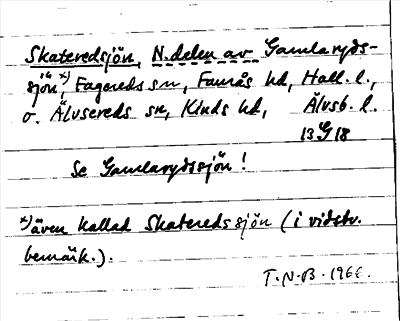 Skateredsjön, N. delen av Gamlaryds-
sjön x), Fagereds sn, Faurås hd, Hall. l.,
o. Älvsereds sn, Kinds hd, Älvsb. l.
13 G 18
Se Gamlarydssjön!
x) även kallad Skateredssjön (i vidstr.
bemärk.).
T.N.B. 1966.